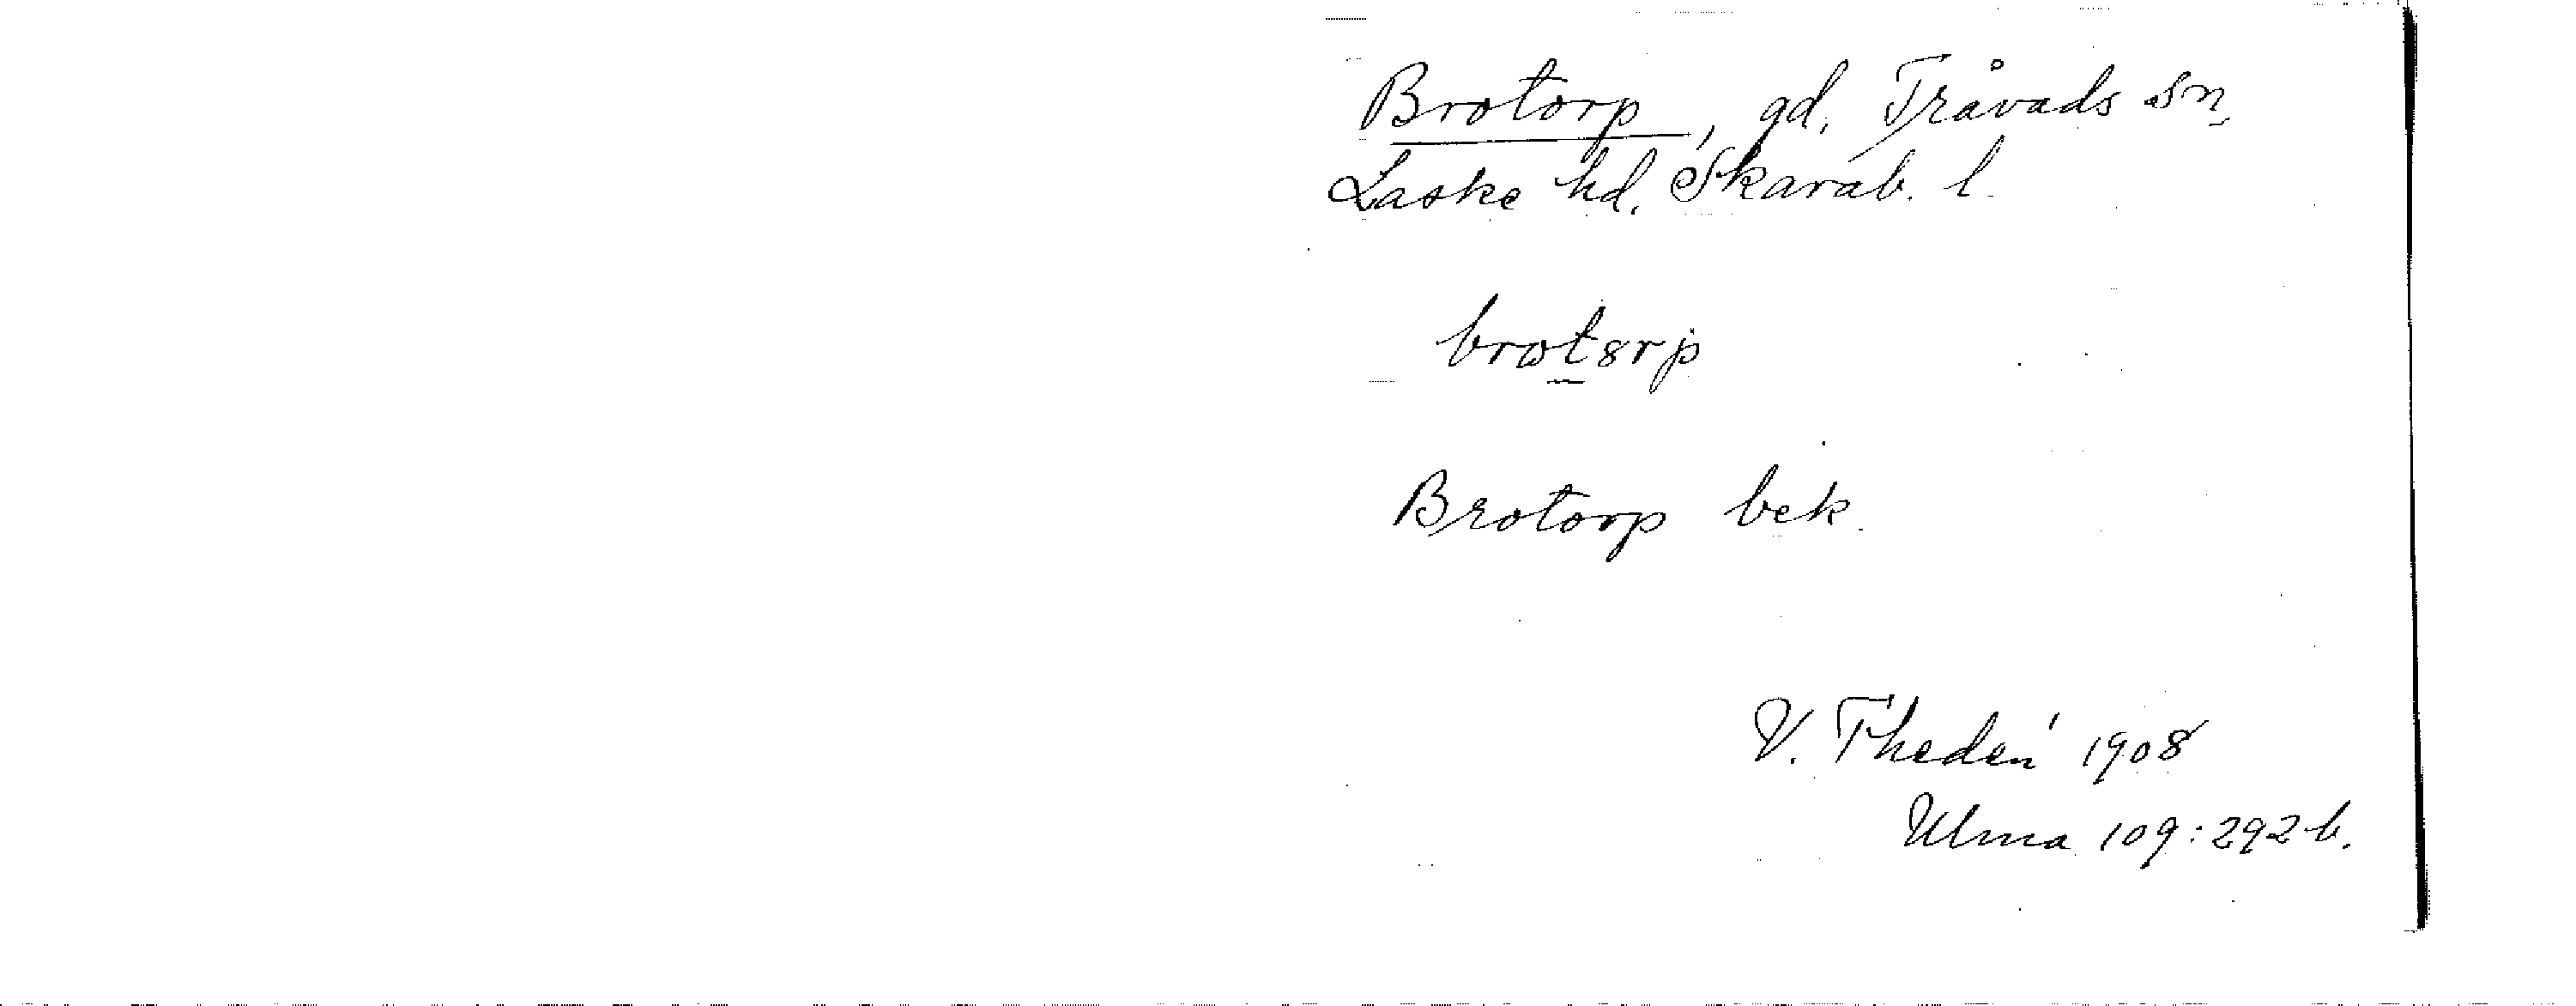 Brotorp, gd. Tråvads sn,
Laske hd. Skarab. l.
brotsrp
Brotorp bek.
V. Thedén 1908
Ulma 109:292 b.